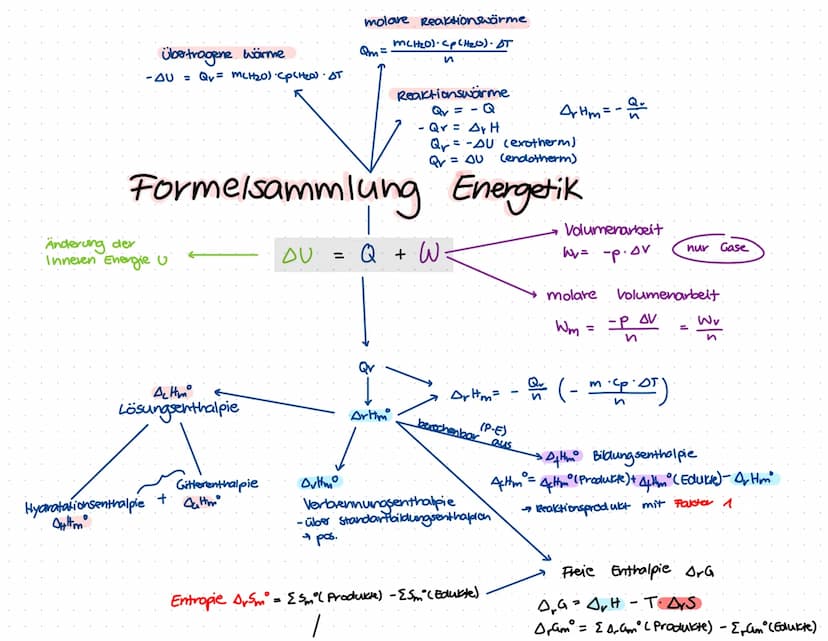 molare Reaktionswärme
Qm = m(H2O) · cp(H2O) · ΔT / n
Übertragene Wärme
-ΔU = Qv = m(H2O) · cp(H2O) · ΔT
Reaktionswärme
Qr = - Q
- Qr = ΔrH
Qr = -ΔU (exotherm)
Qr = ΔU (endotherm)
ΔrHm = - Qr/n
Formelsammlung Energetik
Änderung der
Inneren Energie U
ΔU = Q + W
Volumenarbeit
Wv = -p · ΔV
nur Gase
molare Volumenarbeit
Wm = -p ΔV / n = Wv / n
Qr
ΔrHm = - Qr/n (- m · cp · ΔT / n)
ΔLHm°
Lösungsenthalpie
ΔrHm°
berechenbar (P-E)
aus
ΔfHm° Bildungsenthalpie
ΔfHm° = ΔfHm° (Produkte) + ΔfHm° (Edukte) - ΔrHm°
→ Reaktionsprodukt mit Faktor 1
Hydratationsenthalpie + Gitterenthalpie
ΔHHm°
ΔGHm°
ΔvHm°
Verbrennungsenthalpie
- über Standartbildungsenthalpien
→ pos.
Freie Enthalpie ΔrG
Entropie ΔrSm° = ΣSm° (Produkte) - ΣSm° (Edukte)
ΔrG = ΔrH - T · ΔrS
ΔrGm° = ΣΔrGm° (Produkte) - ΣrGm° (Edukte)